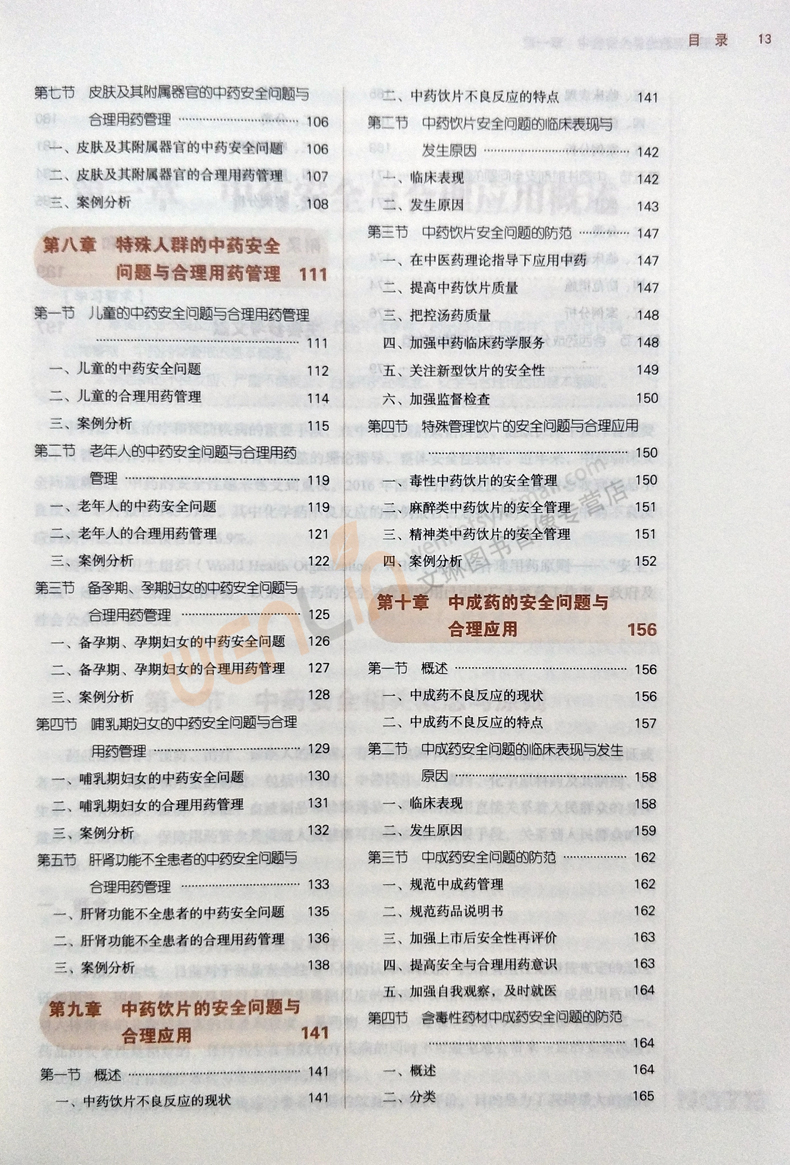 目 录 13
第七节 皮肤及其附属器官的中药安全问题与
合理用药管理 106
一、皮肤及其附属器官的中药安全问题 106
二、皮肤及其附属器官的合理用药管理 107
三、案例分析 108
第八章 特殊人群的中药安全
问题与合理用药管理 111
第一节 儿童的中药安全问题与合理用药管理
111
一、儿童的中药安全问题 112
二、儿童的合理用药管理 114
三、案例分析 115
第二节 老年人的中药安全问题与合理用药
管理 119
一、老年人的中药安全问题 119
二、老年人的合理用药管理 121
三、案例分析 122
第三节 备孕期、孕期妇女的中药安全问题与
合理用药管理 125
一、备孕期、孕期妇女的中药安全问题 126
二、备孕期、孕期妇女的合理用药管理 127
三、案例分析 128
第四节 哺乳期妇女的中药安全问题与合理
用药管理 129
一、哺乳期妇女的中药安全问题 130
二、哺乳期妇女的合理用药管理 131
三、案例分析 132
第五节 肝肾功能不全患者的中药安全问题与
合理用药管理 133
一、肝肾功能不全患者的中药安全问题 135
二、肝肾功能不全患者的合理用药管理 136
三、案例分析 138
第九章 中药饮片的安全问题与
合理应用 141
第一节 概述 141
一、中药饮片不良反应的现状 141
二、中药饮片不良反应的特点 141
第二节 中药饮片安全问题的临床表现与
发生原因 142
一、临床表现 142
二、发生原因 143
第三节 中药饮片安全问题的防范 147
一、在中医药理论指导下应用中药 147
二、提高中药饮片质量 147
三、把控汤药质量 148
四、加强中药临床药学服务 148
五、关注新型饮片的安全性 149
六、加强监督检查 150
第四节 特殊管理饮片的安全问题与合理应用
150
一、毒性中药饮片的安全管理 150
二、麻醉类中药饮片的安全管理 151
三、精神类中药饮片的安全管理 151
四、案例分析 152
第十章 中成药的安全问题与
合理应用 156
第一节 概述 156
一、中成药不良反应的现状 156
二、中成药不良反应的特点 157
第二节 中成药安全问题的临床表现与发生
原因 158
一、临床表现 158
二、发生原因 159
第三节 中成药安全问题的防范 162
一、规范中成药管理 162
二、规范药品说明书 162
三、加强上市后安全性再评价 163
四、提高安全与合理用药意识 163
五、加强自我观察，及时就医 164
第四节 含毒性药材中成药安全问题的防范
164
一、概述 164
二、分类 165
wenlin
wenlintsyx.tmall.com
文琳图书音像专营店